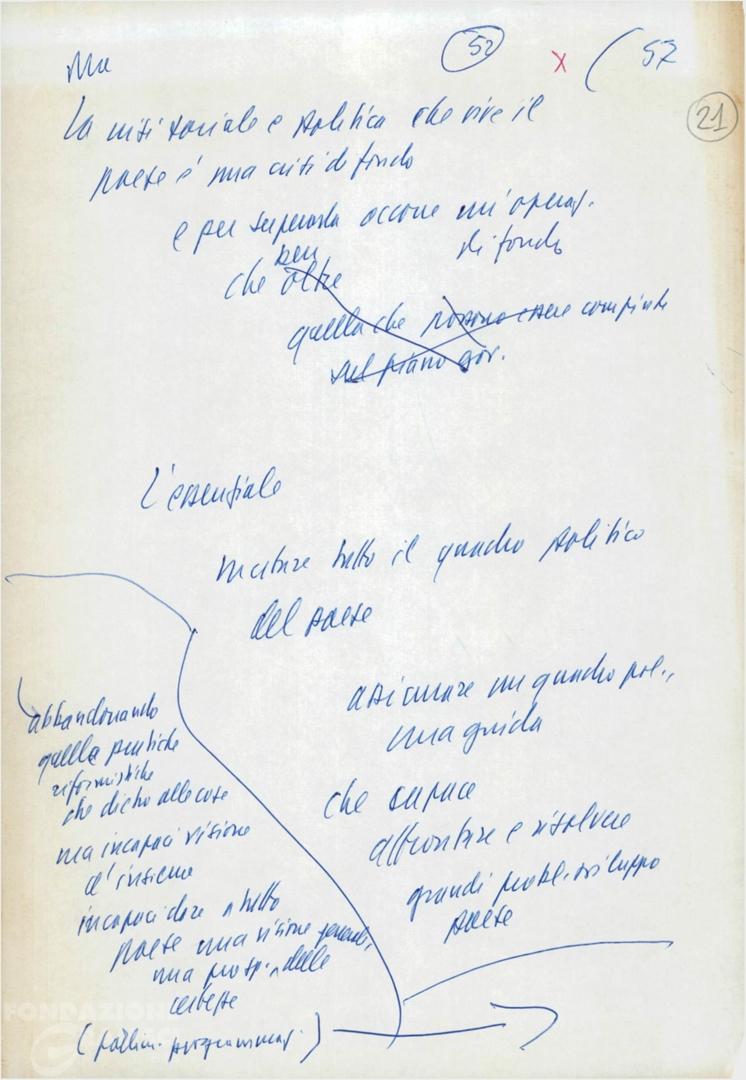 Ma
52
x ( 57
21
La crisi sociale e politica che vive il
paese è una crisi di fondo
e per superarla occorre un'operaz.
di fondo
ben
che oltre
quella che possono essere compiute
sul piano gov.
L'essenziale
mutare tutto il quadro politico
del paese
assicurare un quadro pol..
una guida
che sappia
affrontare e risolvere
grandi probl. sviluppo
paese
abbandonando
quelle pratiche
riformistiche
che dietro alle cose
ma incapaci visione
d'insieme
incapaci dare a tutto
paese una visione generale,
una prosp. delle
certezze
( programmaz. )
FONDAZIONE